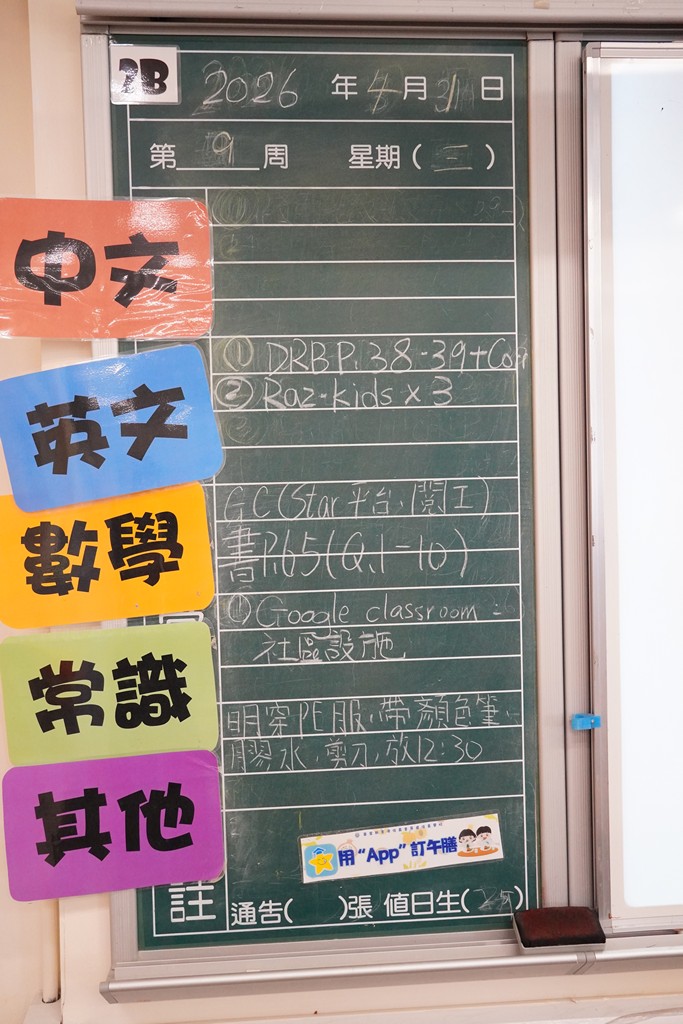 2B
2026 年 月 日
第 9 周 星期(三)
中文
英文
① DRBP.38-39+Corr
② Raz-kids x 3
數學
GC(Star平台、閱工)
書P.65(Q.1-10)
常識
① Google classroom:
社區設施
其他
明穿PE服,帶顏色筆、
膠水,剪刀,放12:30
用“App”訂午膳
註
通告( )張 值日生( )